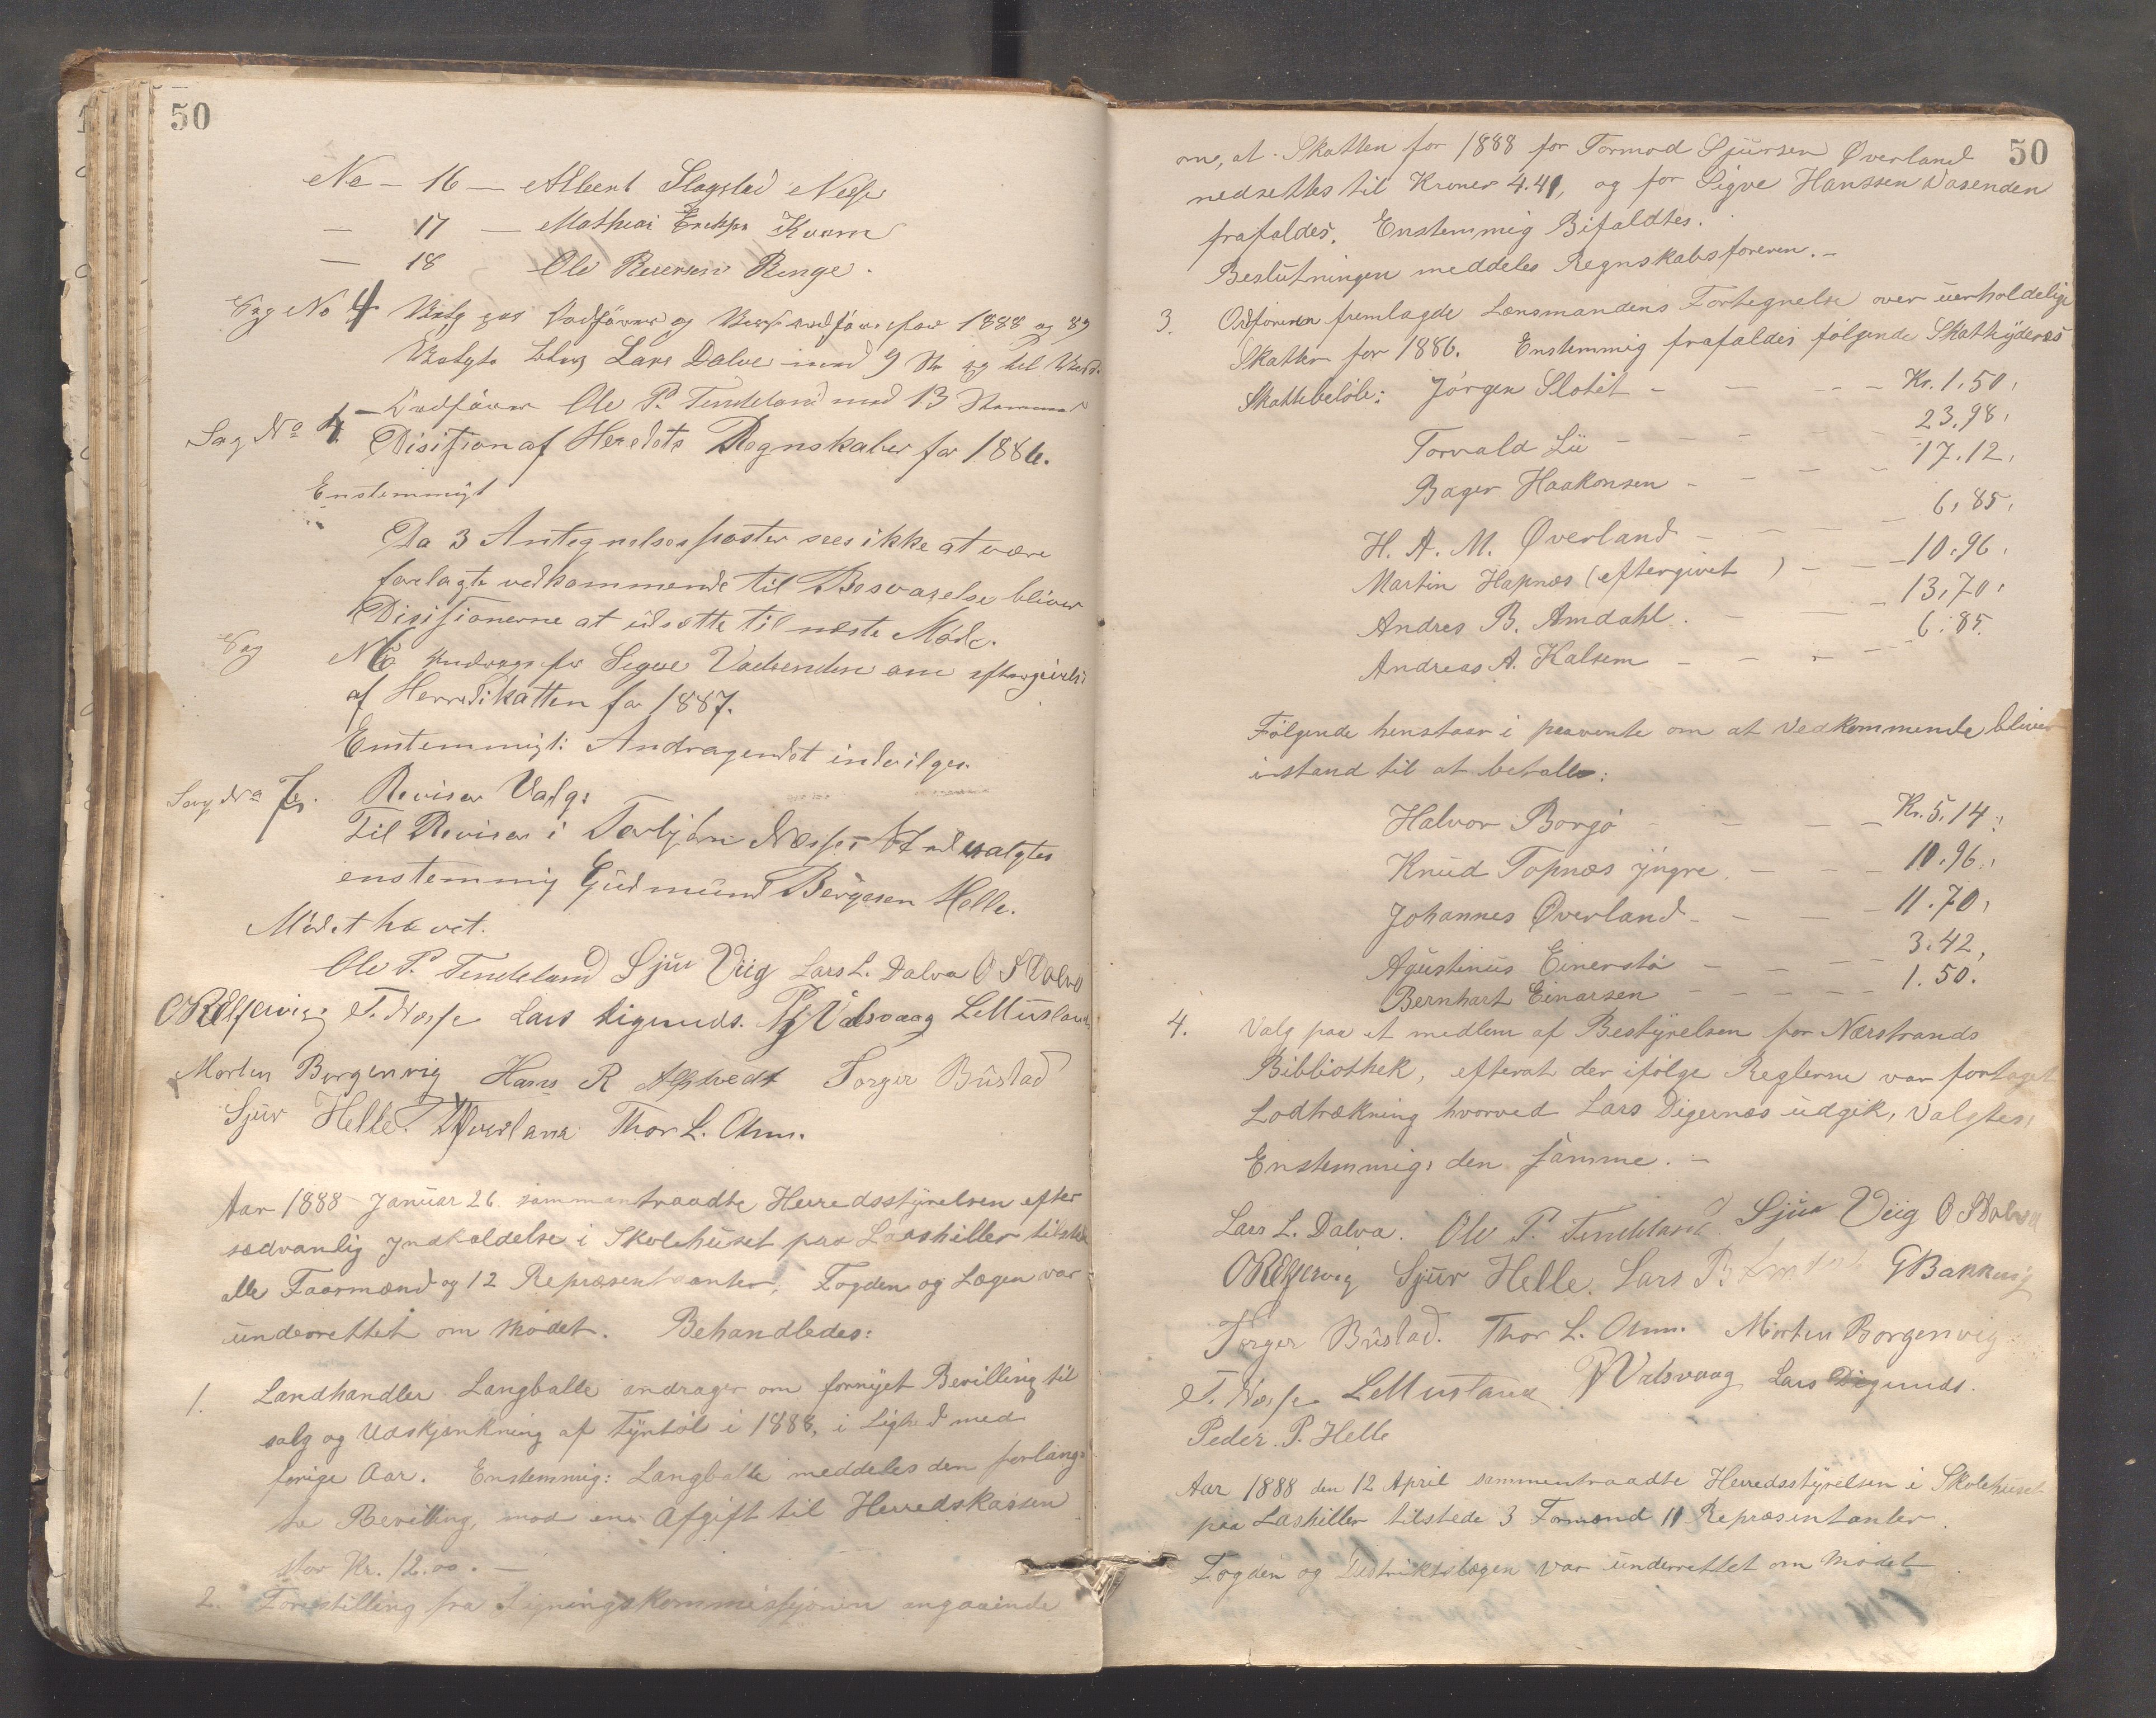 50
No - 16 - Albert Slogstad Næsse
- 17 - Mathias Kvam
- 18 Ole Reiersen Renge.
Sag No 4 Valg paa Ordfører og for 1888 og 89
Valgte blev Lars Dalva med 9 St og til
Ordfører Ole P. Tendeland med 13 Stemmer
Sag No Disisjon af Heredets Regnskaber for 1886.
Enstemmigt
Da 3 Antegnelsesposter sees ikke at være
forelagte vedkommende til Besvarelse bliver
Disisjonerne at udsætte til næste Møde.
Sag No 6 Andrage fra Sigve Vadsenden om eftergivelse
af Herredskatten for 1887.
Enstemmigt: Andragendet indvilges.
Sag No 7. Revisor Valg:
Til Revisor i Torbjørn Næsses Sted valgtes
enstemmig Gudmund Børgesen Helle.
Mødet hævet.
Ole P. Tendeland Sjur Viig Lars L. Dalva O S Dalva
T. Næsse Lars Digernæs. Valsvaag L. Mustand
Morten Borgenvig Hans R Torger Bustad
Sjur Helle. T. Øverland Thor L. Amm.
Aar 1888 Januar 26 sammentraadte Herredsstyrelsen efter
sædvanlig Indkaldelse i Skolehuset paa Laashiller tilstede
alle Formænd og 12 Repræsentanter. Fogden og Lægen var
underrettet om Mødet. Behandledes:
1. Landhandler Langballe andrager om fornyet Bevilling til
salg og Udskjænkning af Tyntøl i 1888, i Lighed med
forige Aar. Enstemmig: Langballe meddeles den forlang-
te Bevilling, mod en Afgift til Herredskassen
stor Kr. 12.00. -
2. Forestilling fra Ligningskommissjonen angaaende
50
om, at Skatten for 1888 for Tormod Sjursen Øverland
nedsettes til Kroner 4.41, og for Sigve Hanssen Vasenden
frafaldes. Enstemmig Bifaldtes.
Beslutningen meddeles Regnskabsføreren. -
3. Ordføreren fremlagde Lensmandens Fortegnelse over uerholdelige
Skatter for 1886. Enstemmig frafaldes følgende Skatteyderes
Skattebeløb: Jørgen Slotet - - - Kr. 1.50,
Torvald Lü - - - 23.98,
Bager Haakonsen - - - 17.12,
H. A. M. Øverland - - - 6,85,
Martin Hapnæs (eftergivet) - - 10.96,
Andres B. Amdahl. - - 13,70,
Andreas A. Kalsem - - - 6.85.
Følgende henstaar i paavente om at Vedkommende bliver
istand til at betalle:
Halvor Borgø - - - Kr. 5.14,
Knud Topnæs yngre. - - - 10.96,
Johannes Øverland - - - 11.70,
Agustinus Einerstø - - - 3.42,
Bernhart Einarsen - - - 1.50.
4. Valg paa et medlem af Bestyrelsen for Nærstrands
Bibliothek, efterat der ifølge Reglerne var fortaget
Lodtrækning hvorved Lars Digernæs udgik, Valgtes:
Enstemmig: den samme. -
Lars L. Dalva. Ole P. Tendeland Sjur Viig O S Dalva
Sjur Helle. Lars B G Bakkevig
Torger Bustad. Thor L. Amm. Morten Borgenvig
T. Næsse L. Mustand Valsvaag Lars Digernæs.
Peder. P. Helle
Aar 1888 den 12 April sammentraadte Herredsstyrelsen i Skolehuset
paa Lashiller tilstede 3 Formænd 11 Repræsentanter.
Fogden og Distriktslægen var underrettet om Mødet